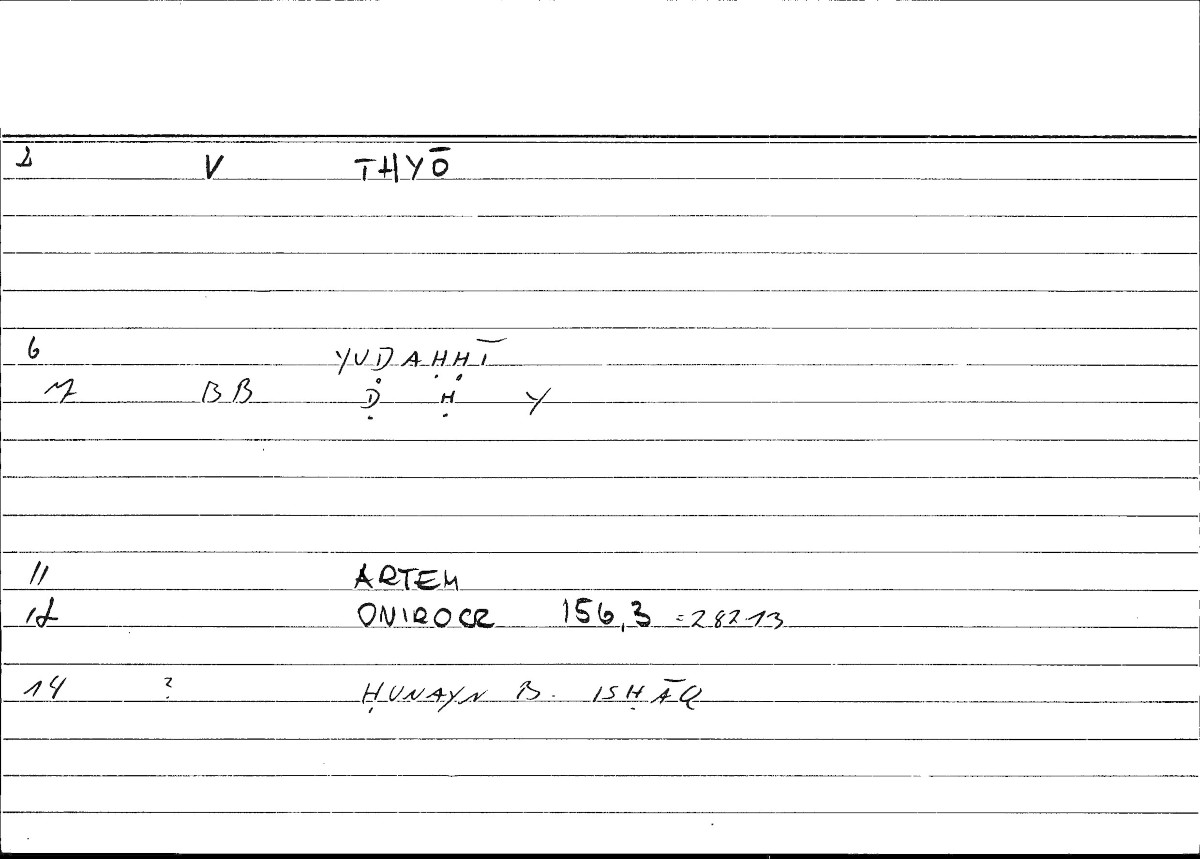 2 V THYŌ
6 YUḌAḤḤĪ
7 BB Ḍ Ḥ Y
11 ARTEM
12 ONIROCR 156,3 =282 13
14 ? ḤUNAYN B. ISḤĀQ